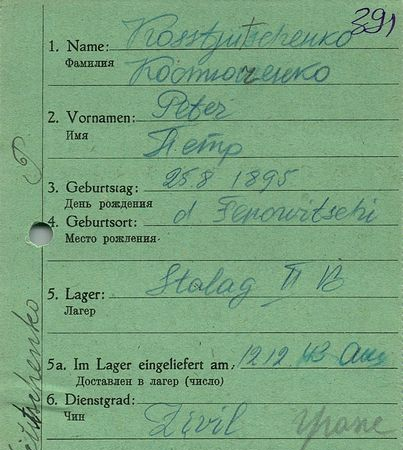 391
1. Name: Kosstjutschenko
Фамилия Костюченко
2. Vornamen: Peter
Имя Петр
3. Geburtstag: 25.8 1895
День рождения
4. Geburtsort: d
Место рождения
5. Lager: Stalag II B
Лагер
5a. Im Lager eingeliefert am 12.12.43
Доставлен в лагер (число)
6. Dienstgrad: Zivil
Чин